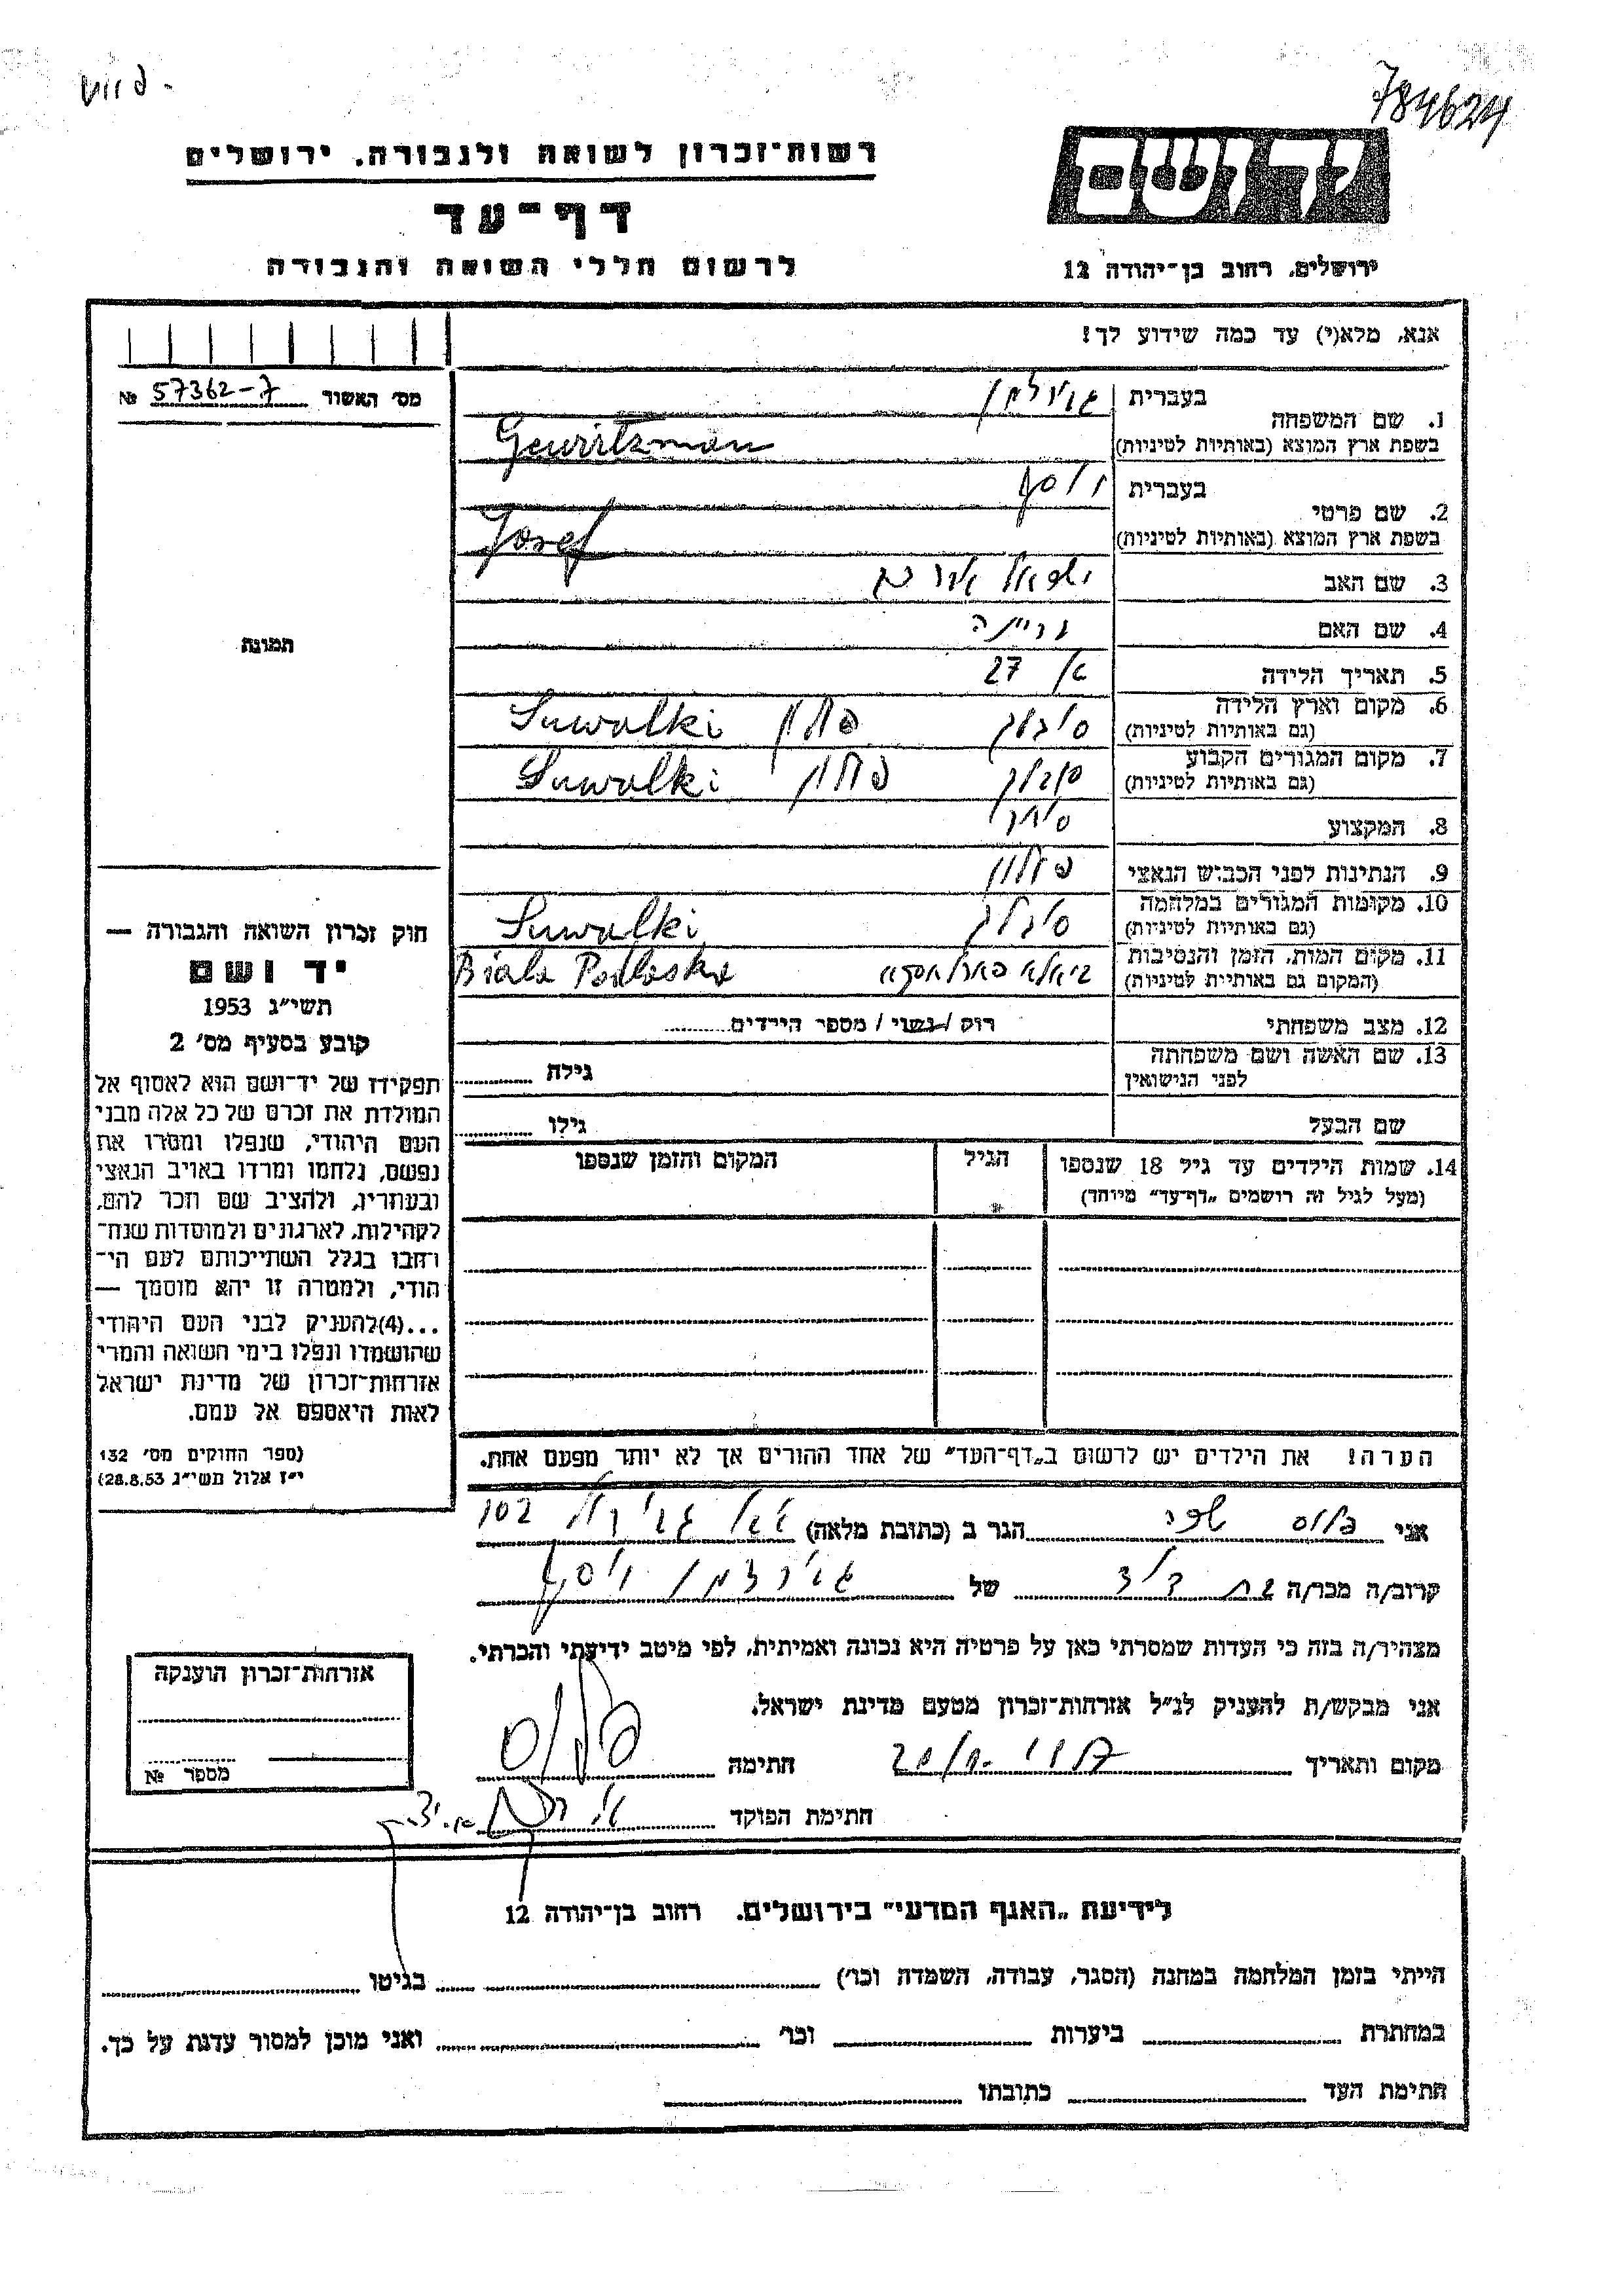 784624
רשות־זכרון לשואה ולגבורה, ירושלים
דף־עד
לרשום חללי השואה והגבורה
יד ושם
ירושלים, רחוב בן־יהודה 12
אנא, מלא(י) עד כמה שידוע לך!
מס׳ האשור 57362-7 №
תמונה
1. שם המשפחה
בעברית
בשפת ארץ המוצא (באותיות לטיניות) Gewirtzman
2. שם פרטי
בעברית יוסף
בשפת ארץ המוצא (באותיות לטיניות) Josef
3. שם האב
4. שם האם
5. תאריך הלידה 27
6. מקום וארץ הלידה (גם באותיות לטיניות) סובלק פולין Suwalki
7. מקום המגורים הקבוע (גם באותיות לטיניות) סובלק פולין Suwalki
8. המקצוע סוחר
9. הנתינות לפני הכבוש הנאצי פולין
10. מקומות המגורים במלחמה (גם באותיות לטיניות) סובלק Suwalki
11. מקום המות, הזמן והנסיבות (המקום גם באותיות לטיניות) ביאלא פאדלאסקא Biala Podlaska
12. מצב משפחתי רוק / נשוי / מספר הילדים
13. שם האשה ושם משפחתה לפני הנישואין גילה
שם הבעל גילו
14. שמות הילדים עד גיל 18 שנספו (מעל לגיל זה רושמים „דף־עד״ מיוחד) הגיל המקום והזמן שנספו
הערה! את הילדים יש לרשום ב„דף־העד״ של אחד ההורים אך לא יותר מפעם אחת.
חוק זכרון השואה והגבורה —
יד ושם
תשי״ג 1953
קובע בסעיף מס׳ 2
תפקידו של יד־ושם הוא לאסוף אל
המולדת את זכרם של כל אלה מבני
העם היהודי, שנפלו ומסרו את
נפשם, נלחמו ומרדו באויב הנאצי
ובעוזריו, ולהציב שם וזכר להם,
לקהילות, לארגונים ולמוסדות שנח־
רבו בגלל השתייכותם לעם הי־
הודי, ולמטרה זו יהא מוסמך —
...(4)להעניק לבני העם היהודי
שהושמדו ונפלו בימי השואה והמרי
אזרחות־זכרון של מדינת ישראל
לאות היאספם אל עמם.
(ספר החוקים מס׳ 132
י״ז אלול תשי״ג 28.8.53)
אני הגר ב (כתובת מלאה) 102
קרוב/ה מכר/ה בת דוד של יוסף
מצהיר/ה בזה כי העדות שמסרתי כאן על פרטיה היא נכונה ואמיתית, לפי מיטב ידיעתי והכרתי.
אני מבקש/ת להעניק לנ״ל אזרחות־זכרון מטעם מדינת ישראל.
מקום ותאריך חתימה
חתימת הפוקד
אזרחות־זכרון הוענקה
מספר №
לידיעת „האגף המדעי״ בירושלים, רחוב בן־יהודה 12
הייתי בזמן המלחמה במחנה (הסגר, עבודה, השמדה וכו׳) בגיטו
במחתרת ביערות וכו׳ ואני מוכן למסור עדות על כך.
חתימת העד כתובתו